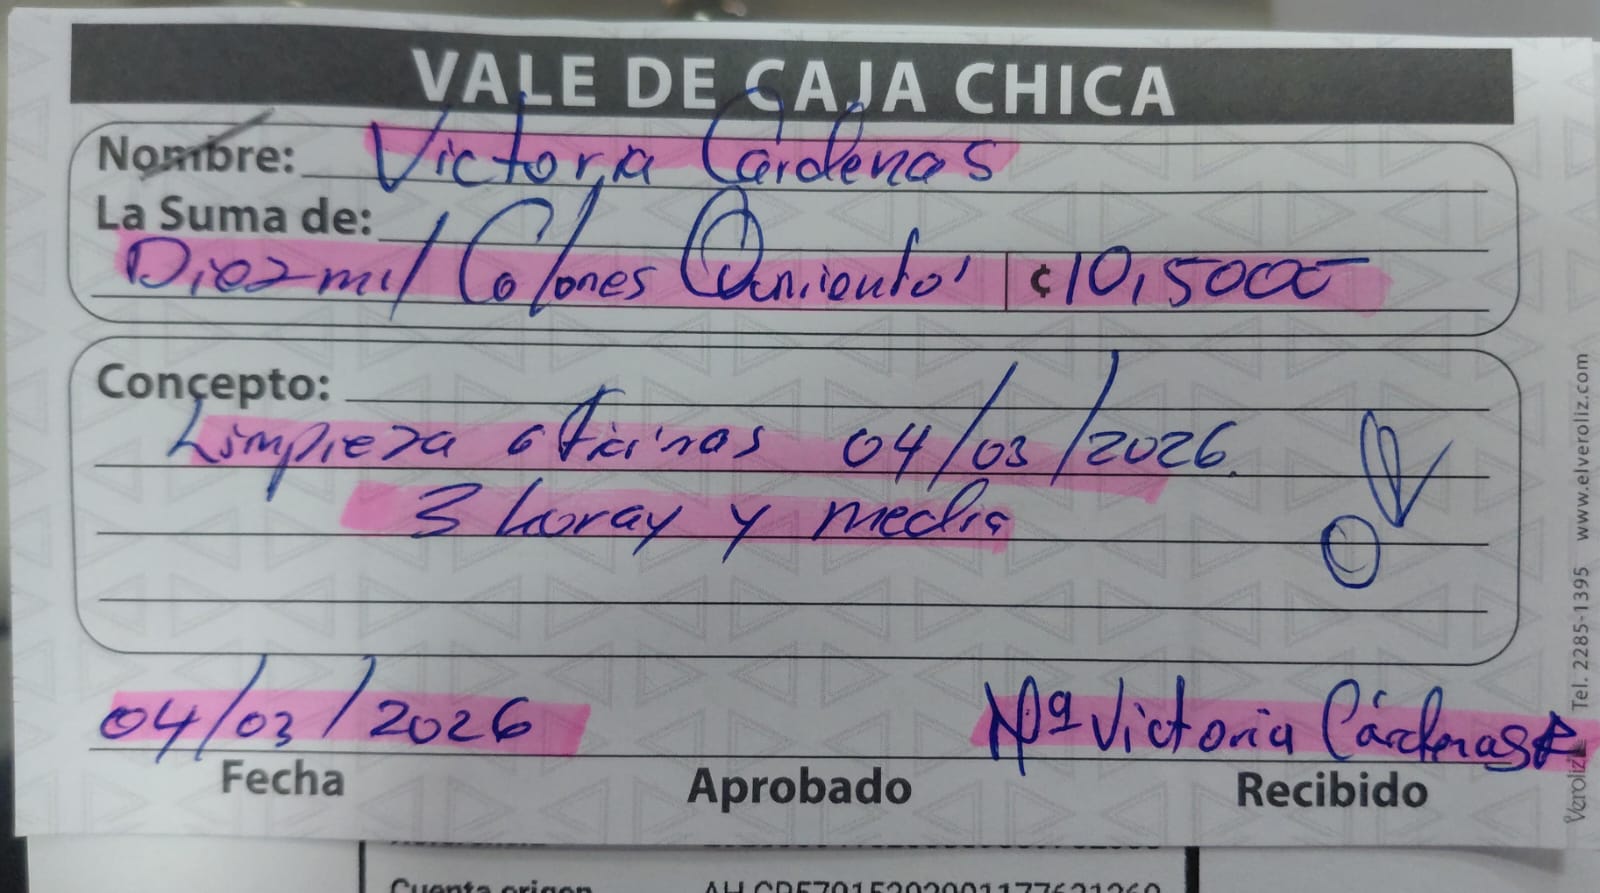 VALE DE CAJA CHICA
Nombre: Victoria Cárdenas
La Suma de:
Diez mil Colones Quinientos ¢10,5000
Concepto:
Limpieza oficinas 04/03/2026.
3 horas y media
04/03/2026 Mª Victoria Cárdenas R
Fecha Aprobado Recibido
Tel. 2285-1395 www.elveroliz.com
Veroliz
Cuenta origen